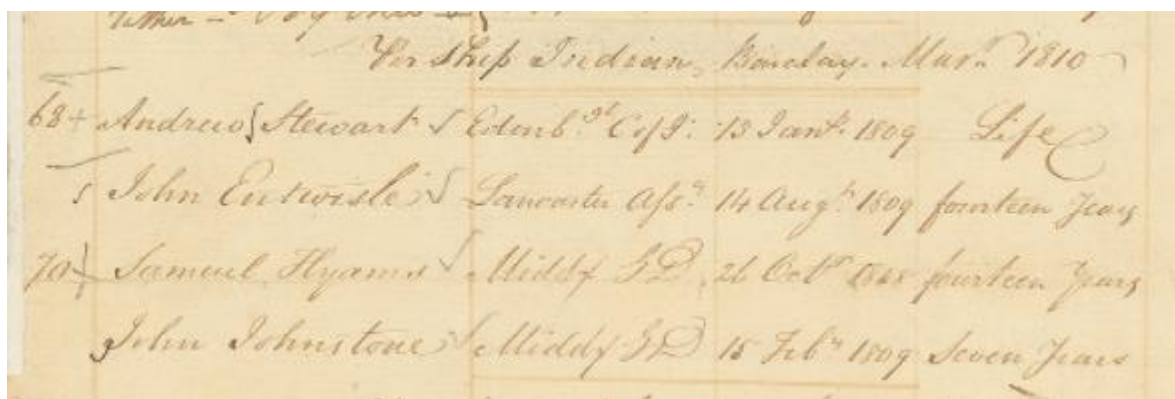 Per Ship Indian, Barclay. Mar. 1810
68 Andrew Stewart Edinb. Ct of J. 13 Jany. 1809 Life
John Entwisle Lancaster Ass. 14 Augt. 1809 fourteen Years
70 Samuel Hyams Middx G D 26 Octr fourteen Years
John Johnstone Middx G D 15 Feby 1809 Seven Years